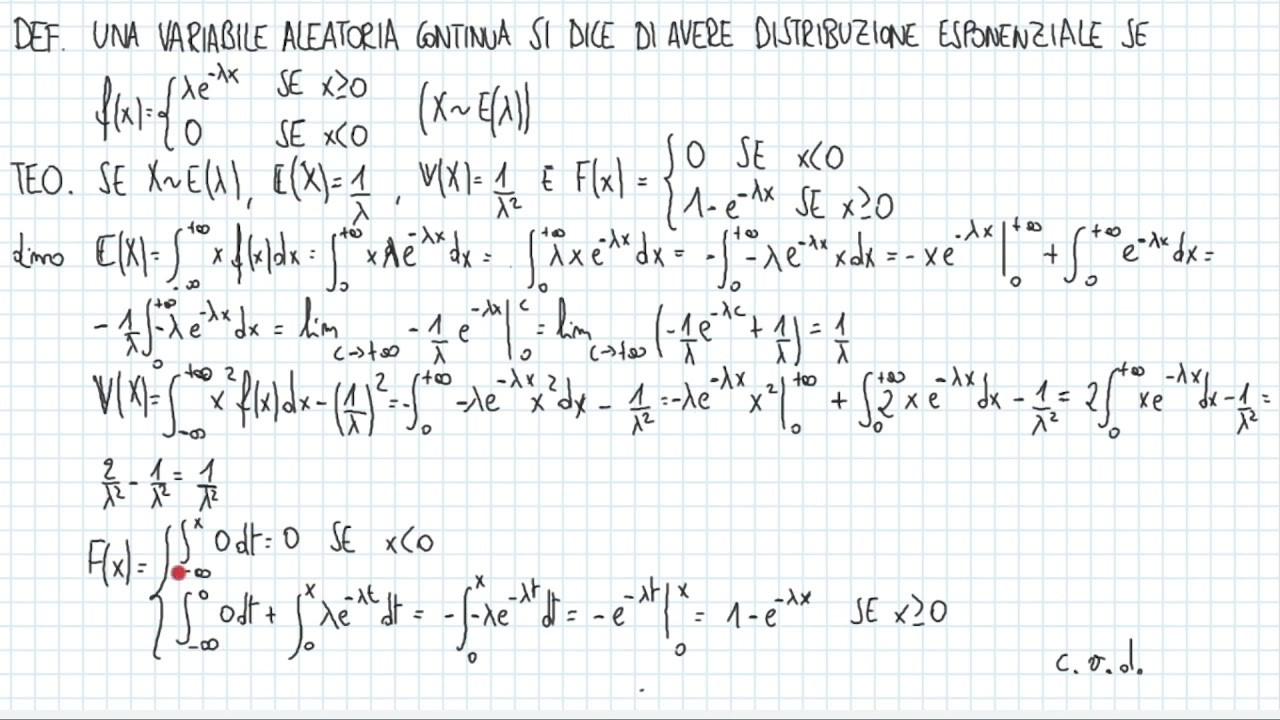 DEF. UNA VARIABILE ALEATORIA CONTINUA SI DICE DI AVERE DISTRIBUZIONE ESPONENZIALE SE
f(x)= { λe^{-λx} SE x≥0 (X~E(λ))
0 SE x<0
TEO. SE X~E(λ), E(X)=1/λ, V(X)=1/λ² E F(x) = { 0 SE x<0
1-e^{-λx} SE x≥0
dimo E(X)=∫_{-∞}^{+∞} x f(x)dx = ∫_0^{+∞} xλe^{-λx}dx = ∫_0^{+∞} λxe^{-λx}dx = -∫_0^{+∞} -λe^{-λx}xdx = -xe^{-λx}|_0^{+∞} + ∫_0^{+∞} e^{-λx}dx =
-1/λ ∫_0^{+∞} -λe^{-λx}dx = lim_{c→+∞} -1/λ e^{-λx}|_0^c = lim_{c→+∞} (-1/λ e^{-λc} + 1/λ) = 1/λ
V(X)=∫_{-∞}^{+∞} x²f(x)dx-(1/λ)²=-∫_0^{+∞} -λe^{-λx}x²dx - 1/λ² =-λe^{-λx}x²|_0^{+∞} + ∫_0^{+∞} 2xe^{-λx}dx - 1/λ² = 2∫_0^{+∞} xe^{-λx}dx - 1/λ² =
2/λ² - 1/λ² = 1/λ²
F(x)= { ∫_{-∞}^x 0dt=0 SE x<0
∫_{-∞}^0 0dt + ∫_0^x λe^{-λt}dt = -∫_0^x -λe^{-λt}dt = -e^{-λt}|_0^x = 1-e^{-λx} SE x≥0
c.v.d.